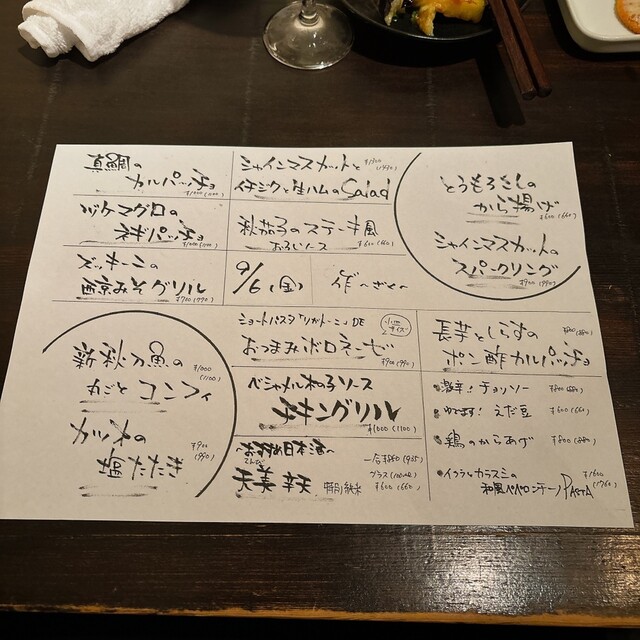 真鯛の
カルパッチョ
¥1000(1100)
ヅケマグロの
ネギパッチョ
¥1000(1100)
ズッキーニの
西京みそグリル
¥700(770)
シャインマスカットと
¥1300
(1430)
イチジクと生ハムのSalad
秋茄子のステーキ風
おろしソース
¥600(660)
9/6(金)
作〜ざく〜
とうもろこしの
から揚げ
¥600(660)
シャインマスカットの
スパークリング
¥900(990)
新秋刀魚の
¥1000
(1100)
丸ごとコンフィ
カツオの
¥900
(990)
塩たたき
ショートパスタ「リガトーニ」DE
サイズ
おつまみボロネーゼ
¥900(990)
ベシャメル和の子ソース
チキングリル
¥1000(1100)
〜おすすめ日本酒〜
一合¥850(935)
天美 辛天
特別純米
グラス(100ml)
¥600(660)
長芋としらすの
¥800(880)
ポン酢カルパッチョ
激辛!チョリソー
¥800(880)
ゆでます!えだ豆
¥600(660)
鶏のからあげ
¥800(880)
イクラとカラスミの
¥1600
(1760)
和風ペペロンチーノPASTA